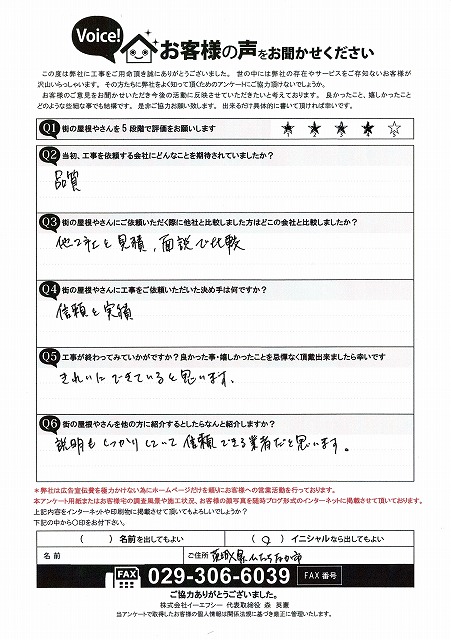 Voice!
お客様の声をお聞かせください
この度は弊社に工事をご用命頂き誠にありがとうございました。世の中には弊社の存在やサービスをご存知ないお客様が
沢山いらっしゃいます。その方たちに弊社をよく知って頂くためのアンケートにご協力頂けないでしょうか。
お客様のご意見をお聞かせいただき今後の活動に反映させていただきたいと考えております。良かったこと、嬉しかったこと
どのような些細な事でも結構です。是非ご協力お願い致します。出来るだけ具体的に書いて頂ければ幸いです。
Q1 街の屋根やさんを5段階で評価をお願いします
1 2 3 4 5
Q2 当初、工事を依頼する会社にどんなことを期待されていましたか?
品質
Q3 街の屋根やさんにご依頼いただく際に他社と比較しました方はどこの会社と比較しましたか?
他2社と見積、面説で比較
Q4 街の屋根やさんに工事をご依頼いただいた決め手は何ですか?
信頼と実績
Q5 工事が終わってみていかがですか?良かった事・嬉しかったことを忌憚なく頂戴出来ましたら幸いです
きれいにできていると思います。
Q6 街の屋根やさんを他の方に紹介するとしたらなんと紹介しますか?
説明もしっかりしていて信頼できる業者だと思います。
*弊社は広告宣伝費を極力かけない為にホームページだけを頼りにお客様への営業活動を行っております。
本アンケート用紙またはお客様宅の調査風景や施工状況、お客様の顔写真を随時ブログ形式のインターネットに掲載させて頂いております。
上記内容をインターネットや印刷物に掲載させて頂いてもよろしいでしょうか?
下記の中から〇印をお付下さい。
( ) 名前を出してもよい ( ○ ) イニシャルなら出してもよい
名前 ご住所 茨城県ひたちなか市
FAX 029-306-6039 FAX番号
ご協力ありがとうございました。
株式会社イーエフシー 代表取締役 森 英憲
当アンケートで取得したお客様の個人情報は関係法規に基づき厳正に管理いたします。